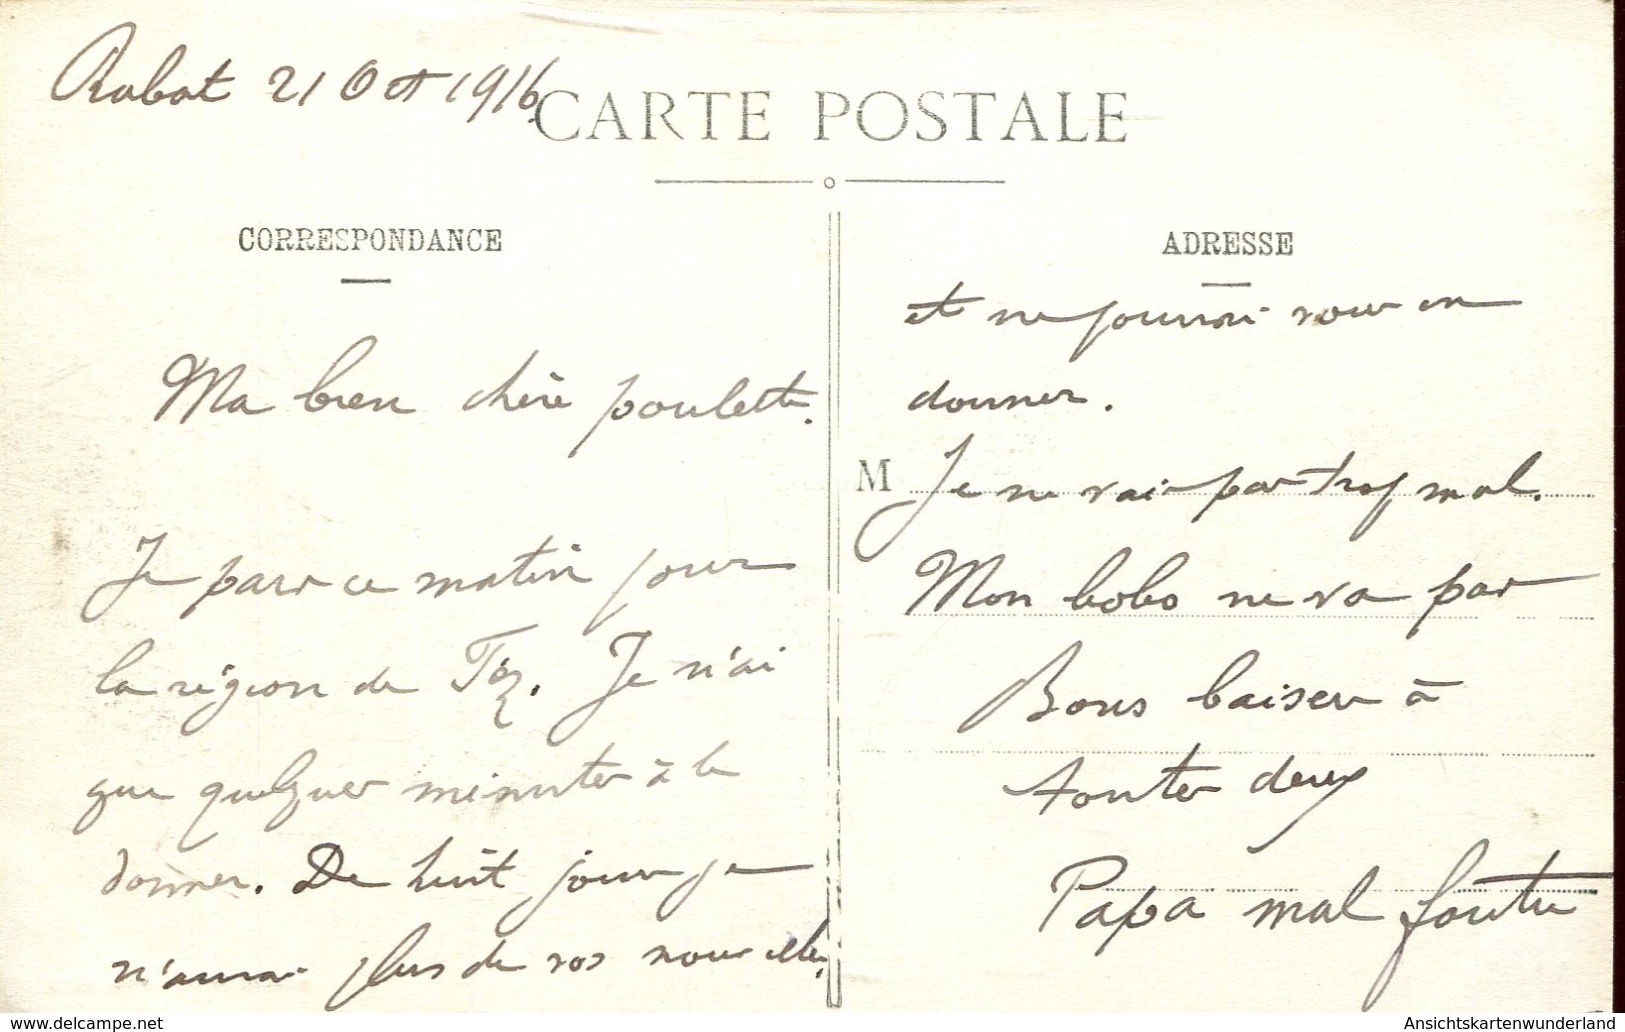 Rabat 21 Oct 1916.
CARTE POSTALE
CORRESPONDANCE
Ma bien chère poulette.
Je pars ce matin pour
la région de Féz. Je n'ai
que quelques minutes à te
donner. De huit jours je
n'aurai plus de vos nouvelles,
ADRESSE
et ne pourrai vous en
donner.
M Je ne vais pas trop mal.
Mon bobo ne va pas
Bons baisers à
toutes deux
Papa mal foutu
AnsichtsKartenwunderland
https://www.delcampe.net